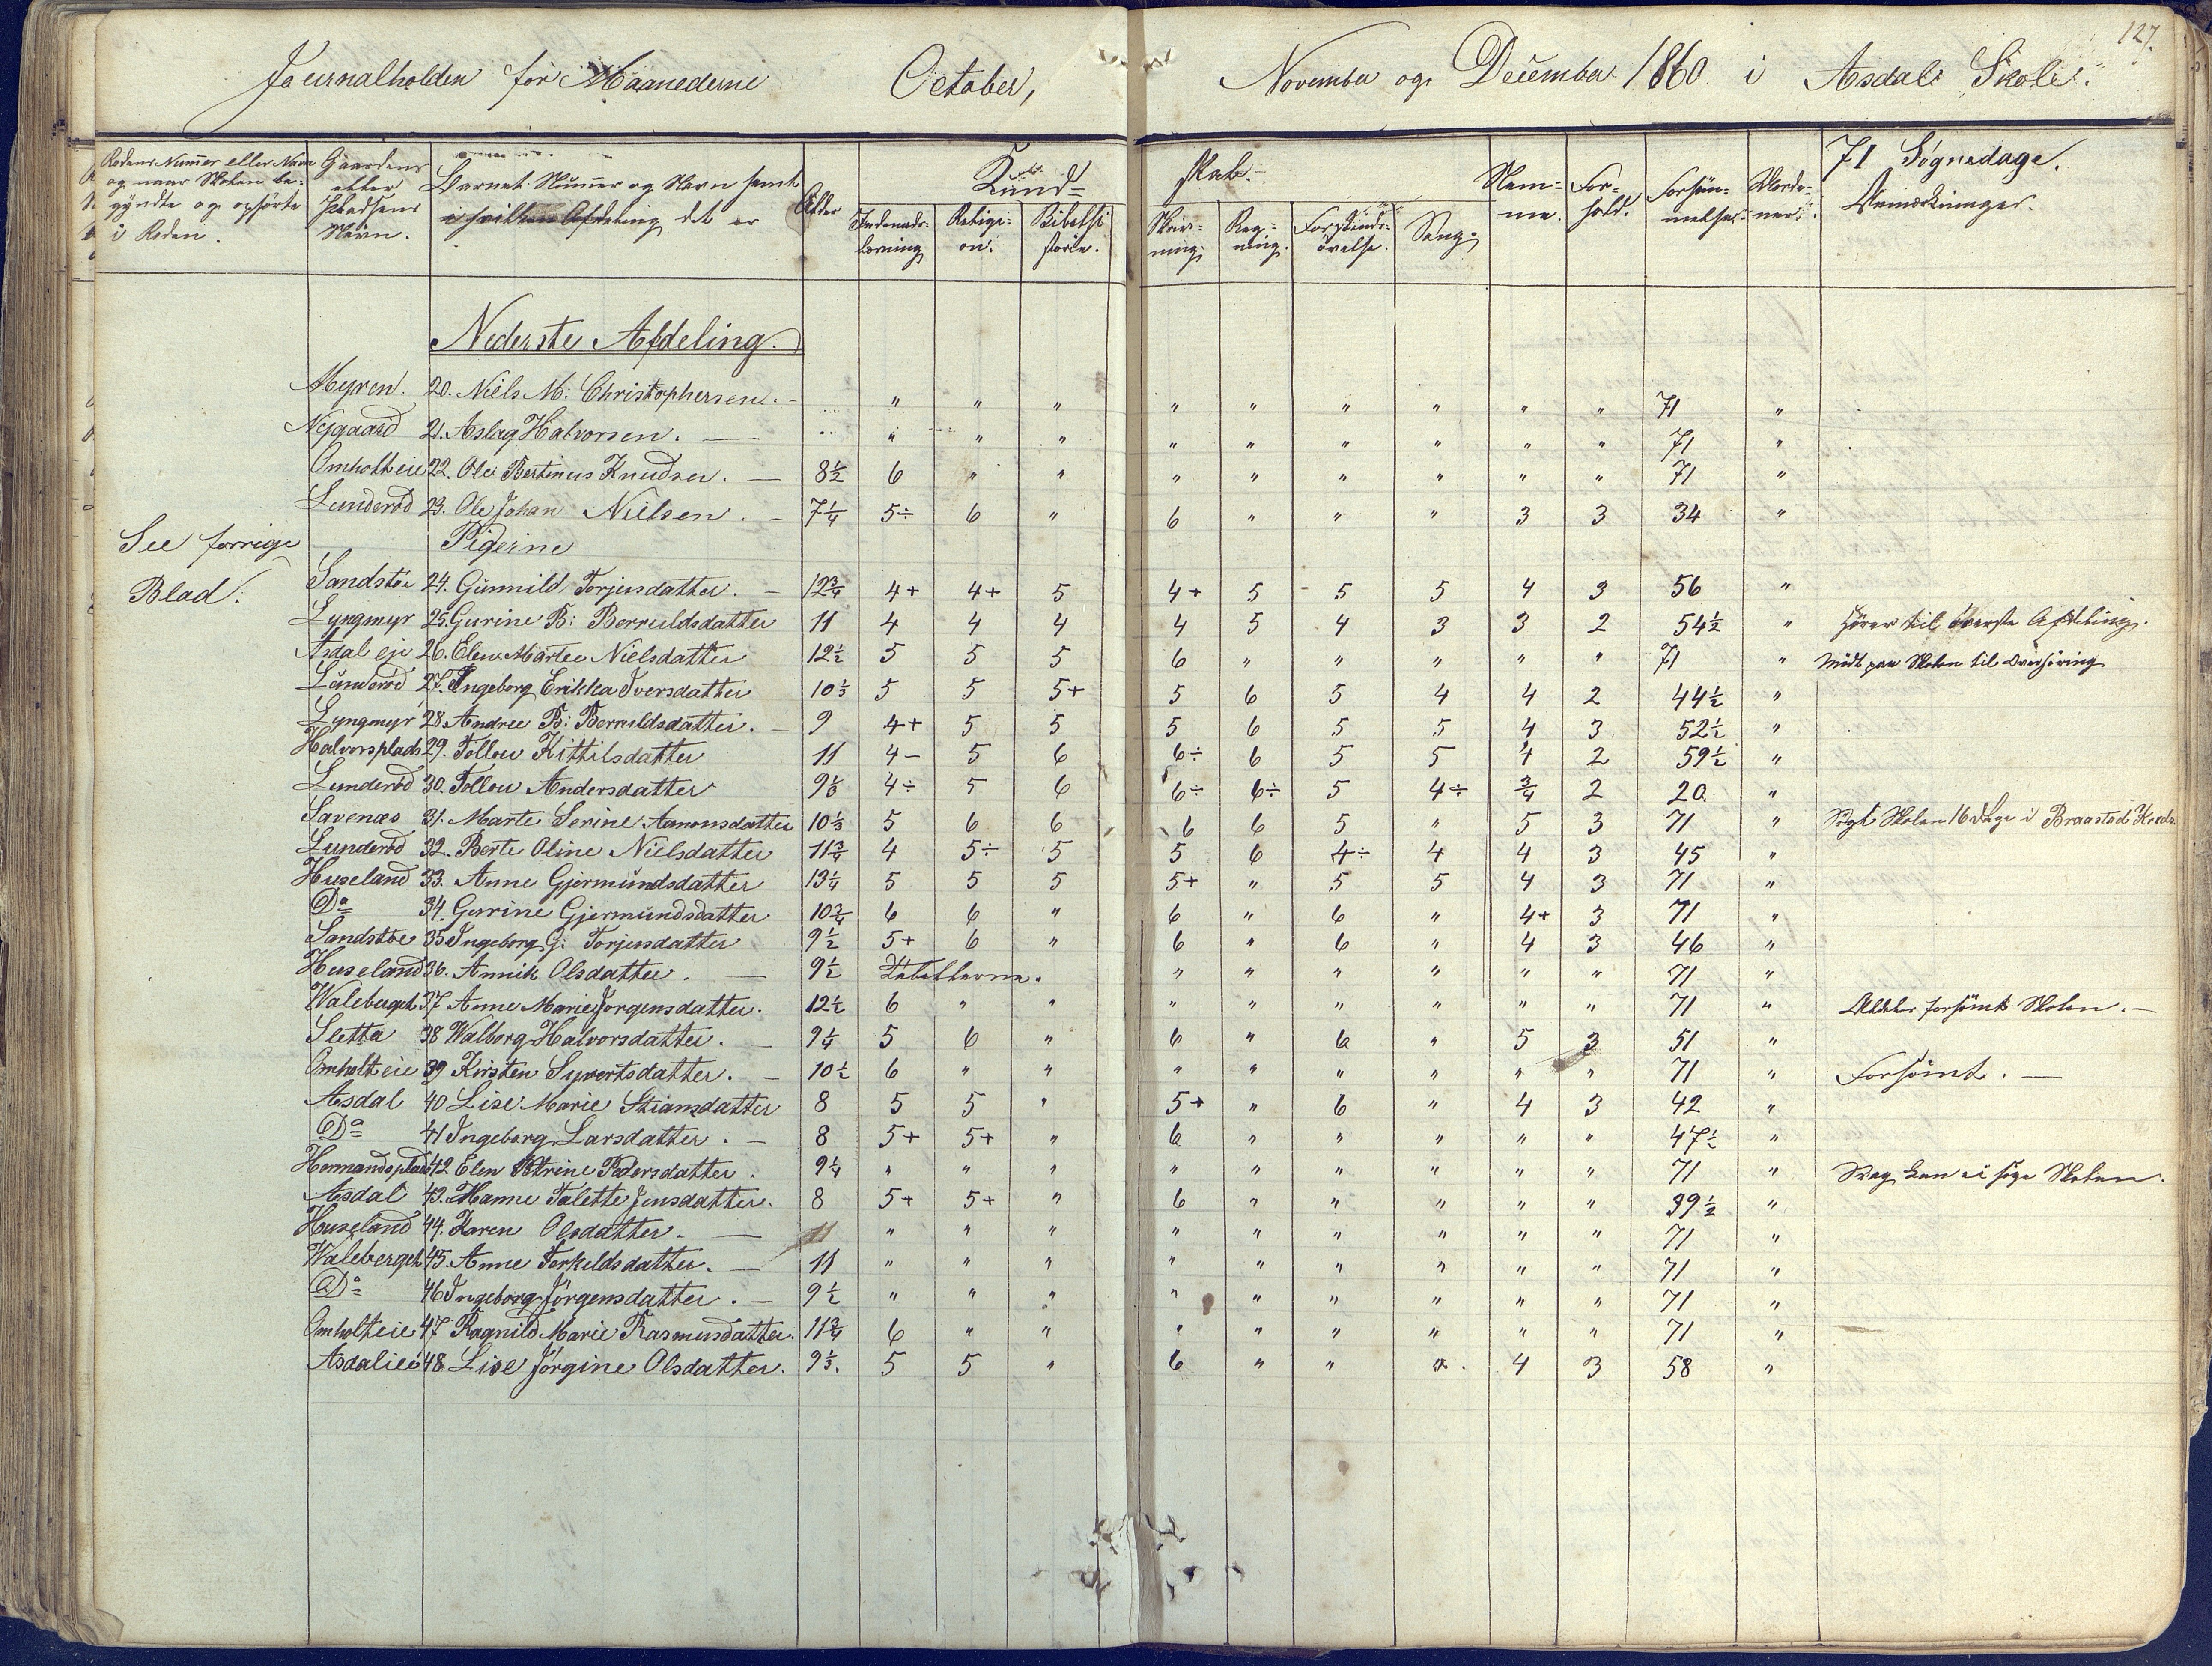 127.
Journalholden for Maanederne October, November og December 1860 i Asdals Skole.
Rodens Nummer eller Navn og naar Skolen begyndte og ophørte i Roden.
Gaardens eller Pladsens Navn.
Barnets Nummer og Navn samt i hvilken Afdeling det er
Alder
Kundskab.
Indenadslæsning
Religion.
Bibelhistorie.
Skrivning.
Regning.
Forstandsøvelse.
Sang.
Nemme.
Forhold.
Forsømmelser.
71 Søgnedage.
Anmærkninger.
Nederste Afdeling.
Myren. 20. Niels M: Christophersen. - " " " " " " " " " 71 "
Nygaard 21. Aslag Halvorsen. - " " " " " " " " " 71 "
Omholteie 22. Ole Bertinus Knudsen. - 8½ 6 " " " " " " " " 71 "
Lunderød 23. Ole Johan Nielsen. - 7¼ 5÷ 6 " 6 " " " 3 3 34 "
See forrige
Pigerne
Blad.
Sandstøe 24. Gunnild Torjusdatter. - 12¾ 4+ 4+ 5 4+ 5 5 5 4 3 56 "
Lyngmyr 25. Gurine B: Berruldsdatter 11 4 4 4 4 5 4 3 3 2 54½ " Hører til øverste Afdeling.
Asdal eje 26. Elen Martee Nielsdatter 12½ 5 5 5 6 " " " " " 71 " Mødt paa Skolen til Overhøring
Lunderød 27. Ingeborg Erikka Iversdatter 10⅓ 5 5 5+ 5 6 5 4 4 2 44½ "
Lyngmyr 28. Andree B: Berruldsdatter. - 9 4+ 5 5 5 6 5 5 4 3 52½ "
Halvorsplads 29. Tollou Kittilsdatter 11 4- 5 6 6÷ 6 5 5 4 2 59½ "
Lunderød 30. Tollou Andersdatter 9⅓ 4÷ 5 6 6÷ 6÷ 5 4÷ ¾ 2 20 "
Savenæs 31. Marte Serine Aanonsdatter 10⅓ 5 6 6 6 6 5 " 5 3 71 " Søgt Skolen 16 Dage i Braastad Kreds
Lunderød 32. Berte Oline Nielsdatter 11¾ 4 5÷ 5 5 6 4÷ 4 4 3 45 "
Huseland 33. Anne Gjermundsdatter 13¼ 5 5 5 5+ " 5 5 4 3 71 "
Do 34. Gurine Gjermundsdatter 10¾ 6 6 " 6 " 6 " 4+ 3 71 "
Sandstøe 35 Ingeborg G: Torjusdatter 9½ 5+ 6 " 6 " 6 " 4 3 46 "
Huseland 36. Annik Olsdatter. - 9½ Tabellerne. " " " " " " 71 "
Waleberget 37 Anne Marie Jørgensdatter. 12½ 6 " " " " " " " " 71 " forsømt Skolen. -
Sletta 38 Walborg Halvorsdatter. - 9¼ 5 6 " 6 " 6 " 5 3 51 "
Omholteie 39 Kirsten Syvertsdatter. - 10½ 6 " " " " " " " " 71 " Forsømt. -
Asdal 40 Lise Marie Stiansdatter 8 5 5 " 5+ " 6 " 4 3 42 "
Do 41 Ingeborg Larsdatter. - 8 5+ 5+ " 6 " " " " " 47½ "
Hermandsplads 42. Elen Petrine Pedersdatter. 9¼ " " " " " " " " " 71 " Svag kan ei søge Skolen.
Asdal 43. Hanne Talette Jensdatter. 8 5+ 5+ " 6 " " " " " 39½ "
Huseland 44. Karen Olsdatter. - 11 " " " " " " " " " 71 "
Waleberget 45. Anne Torkildsdatter. - 11 " " " " " " " " " 71 "
Do 46 Ingeborg Jørgensdatter. - 9½ " " " " " " " " " 71 "
Omholteie 47 Ragnild Marie Rasmusdatter. 11¾ 6 " " " " " " " " 71 "
Asdaleie 48. Lise Jørgine Olsdatter. 9⅓. 5 5 " 6 " " " 4 3 58 "